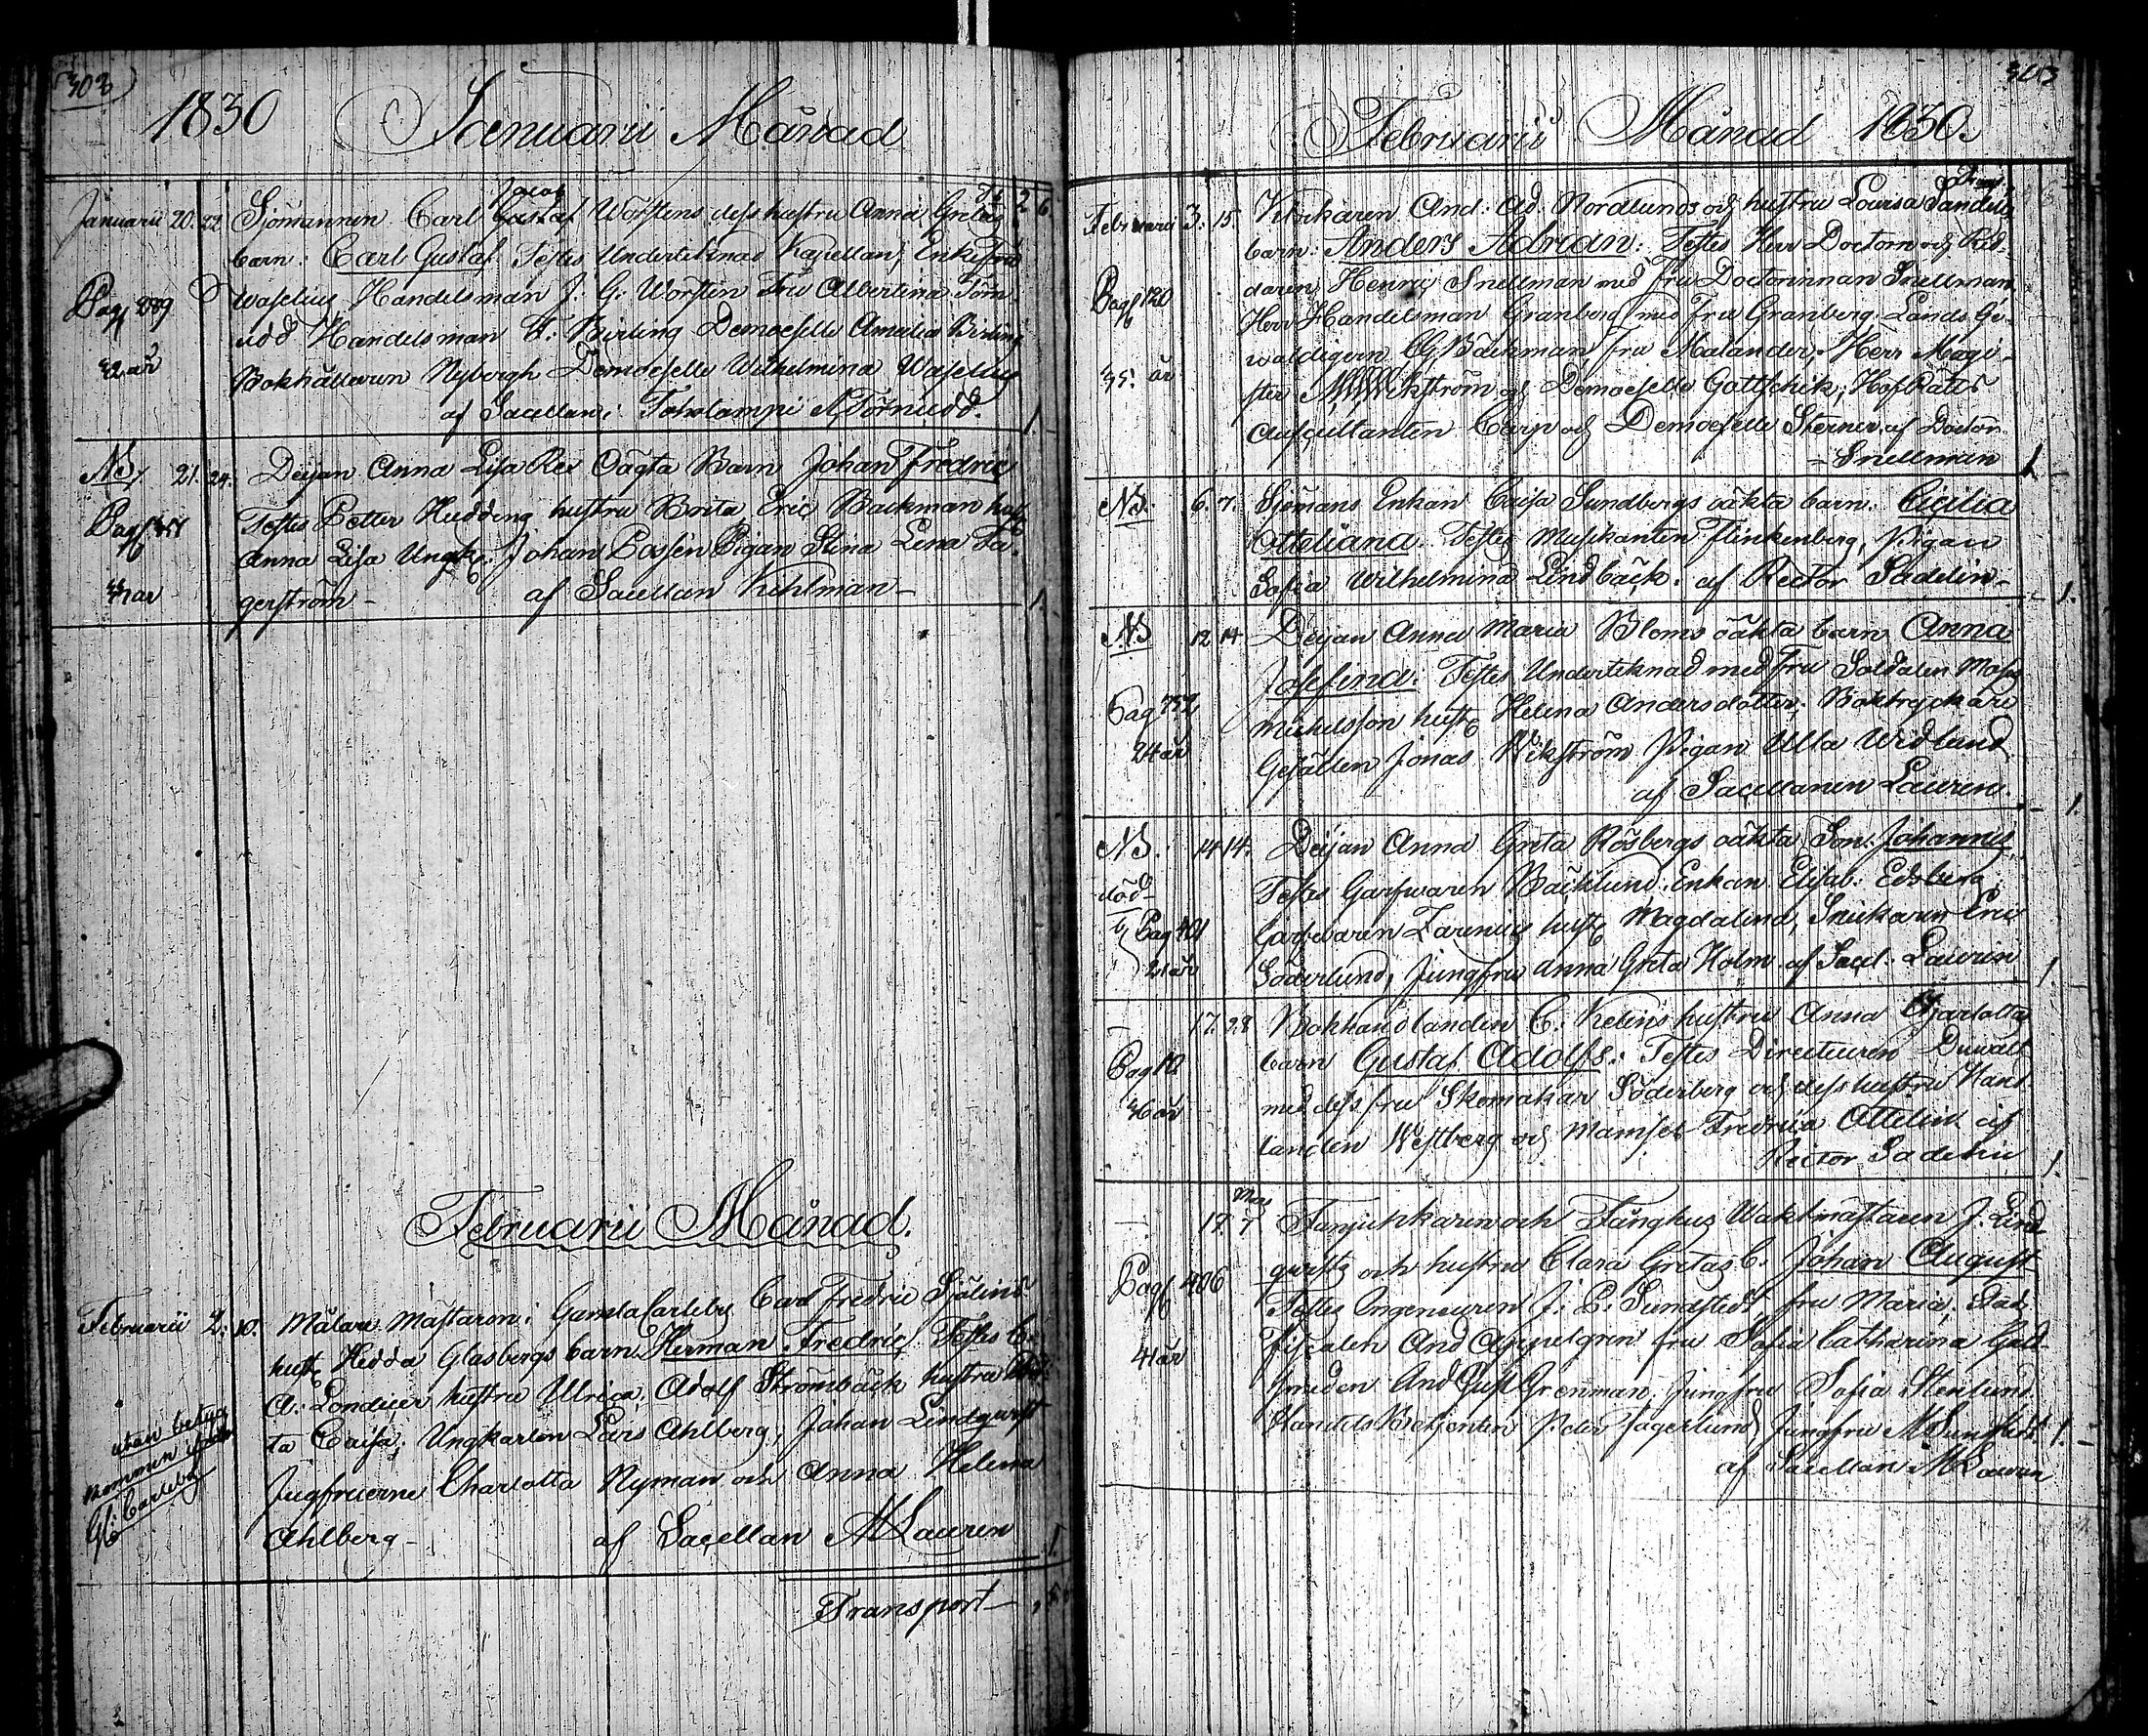 303
1830 Januarii Månad
Januarii 20. 22. Sjömannen Carl Jacob Gustaf Worstens dess hustru Anna Gretas
barn: Carl Gustaf Testes Undertecknad Kapellan; Enke Fru
Waselius Handelsman J. G. Worsten Fru Albertina Törn-
Pag 289
udd Handelsman F. Birling Demoeselle Amalia Birling
32 år
Bokhållaren Nybergh Demoeselle Wilhelmina Waselius
af Sacellan i Toholampi Törnudd. 1.
NB. 21. 24. Deijan Anna Lisa Rex Oägta Barn Johan Fredric
Testes Petter Hudding hustru Brita Eric Backman hust
Pag
Anna Lisa Ungk. Johan Possén Pigan Stina Lena Fa-
gerström - af Sacellan Kihlman - 1.
Februarii Månad.
Februarii 2. 10. Målare Mästaren i Gamla Carleby Carl Fredric Sjölins
hust Hedda Glasbergs barn Herman Fredric, Testes C.
A. Londicer hustru Ulrica; Adolf Strömbäck hustru
ta Caisa; Ungkarlen Lars Ahlberg; Johan Lindqwist
utan betyg
kommen ifrån
Gl. Carleby
Jugfruerne Charlotta Nyman och Anna Helena
Ahlberg - af Sacellan M Lauren 1
Transport
303
Februarii Månad 1830.
Februarii 3. 15. Klockaren And: Ad: Nordlunds och hustru Lovisa Sandels
barn: Anders Adrian: Testes Herr Doctorn och Rid-
Pag 120
daren Henric Snellman med Fru Doctorinnan Snellman
Herr Handelsman Granberg med Fru Granberg. Lands Ge-
waldigern CG Bäckman Fru Malander, Herr Magi-
35. år
ster Ekström och Demoeselle Gottschik; Hof Rätts
Auscultanten Carp och Demoeselle Sterner. af Doctor
- Snellman 1
NB. 6. 7. Sjömans Enkan Caisa Sundbergs oäkta barn. Cicilia
Otteliana. Testes Musikanten Flinkenberg, Pigan
Sofia Wilhelmina Lindbäck. af Rector Sadelin - 1.
NB 12 14 Deijan Anna Maria Bloms oäkta barn Anna
Josefina. Testes Undertecknad med Fru Soldaten Mats
Pag 752
Michelsson hust Helena Andersdotter; Boktryckare
24 år
Gesällen Jonas Wikström Pigan Ulla Widlund
af Sacellanen Lauren. 1.
NB. 14 14. Deijan Anna Greta Rösbergs oäkta Son: Johannis
död
Testes Garfwaren Bäcklund. Enkan Elisab: Edsberg;
Pag 401
Garfwaren Zarenius hust Magdalena, Snickaren Eric
21 år
Söderlund, Jungfru Anna Greta Holm. af Sacel: Laurin 1
17. 28 Bokhandlanden C. Keleins hustru Anna Charlottas
Pag 12
barn Gustaf Adolf: Testes Directeuren Duwalt
36 år
med dess fru Skomakar Söderberg och dess hustru Hand-
landen Westberg och Mamsel Fredrica Ottelin af
Rector Sadelin 1.
17. Mars 7 Fanjunkaren och Fånghus Waktmästaren J. Lind
qwists och hustru Clara Gretas b. Johan August
Pag 406
Testes Ingenieuren J. E. Sundstedt, fru Maria. Stads
41 år
Fiscalen And Appelgren fru Sofia Catharina Guld
smeden And Gust Grenman. Jungfru Sofia Stenlund.
Handels Betjenten Peter Fagerlund Jungfru M Sundstedt. 1.
af Sacellan M Lauren